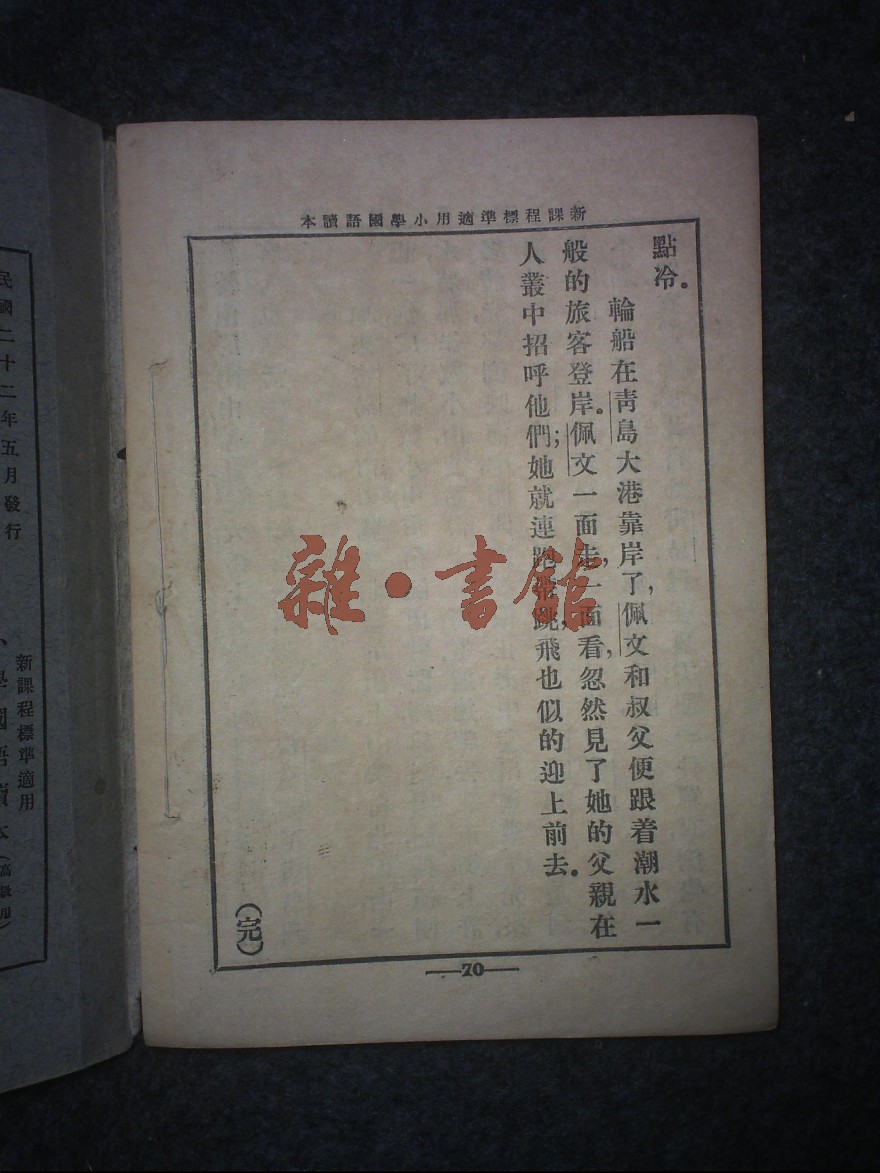 新課程標準適用小學國語讀本
點冷。
輪船在靑島大港靠岸了，佩文和叔父便跟着潮水一
般的旅客登岸。佩文一面走，一面看，忽然見了她的父親在
人叢中招呼他們；她就連跑帶跳，飛也似的迎上前去。
（完）
—70—
雜·書館
新課程標準適用
小學國語讀本（高級用）
民國二十二年五月發行